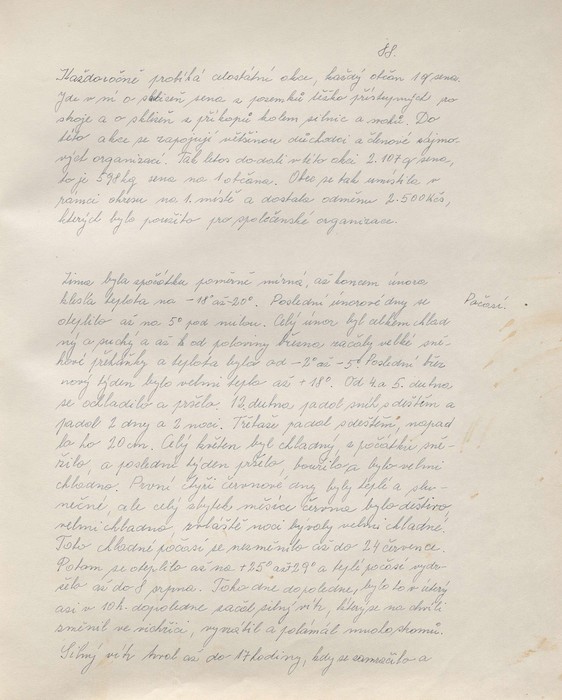 88.
Každoročně probíhá celostátní akce, každý občan 1 q sena.
Jde v ní o sklizeň sena z pozemků těžko přístupných pro
stroje a o sklizeň z příkopů kolem silnic a vodů. Do
této akce se zapojují většinou důchodci a členové zájmo-
vých organizací. Tak letos dodali v této akci 2.107 q sena,
to je 598 kg sena na 1 občana. Obec se tak umístila v
rámci okresu na 1. místě a dostala odměnu 2.500 Kčs,
kterých bylo použito pro společenské organizace.
Zima byla zpočátku poměrně mírná, až koncem února
klesla teplota na -18° až -20°. Poslední únorové dny se
Počasí.
oteplilo až na 5° pod nulou. Celý únor byl celkem chlad
ný a suchý a až od poloviny března začaly velké sně-
hové přeháňky a teplota byla od -2° až -5°. Poslední břez
nový týden bylo velmi teplo až +18°. Od 4. a 5. dubna
se ochladilo a pršelo. 12. dubna padal sníh s deštěm a
padal 2 dny a 2 noci. Třebaže padal s deštěm, napad
lo ho 20 cm. Celý květen byl chladný, z počátku sně-
žilo, a poslední týden pršelo, bouřilo a bylo velmi
chladno. První čtyři červnové dny byly teplé a slu-
nečné, ale celý zbytek měsíce června bylo deštivo,
velmi chladno, zvláště noci bývaly velmi chladné.
Toho chladné počasí se nezměnilo až do 24 července.
Potom se oteplilo až na +25° až 29° a teplé počasí vydr-
želo až do 8 srpna. Toho dne dopoledne, bylo to v úterý
asi v 10h. dopoledne začal silný vítr, který se na chvíli
změnil ve vichřici, vyvrátil a polámal mnoho stromů.
Silný vítr trval až do 17 hodiny, kdy se zamračilo a